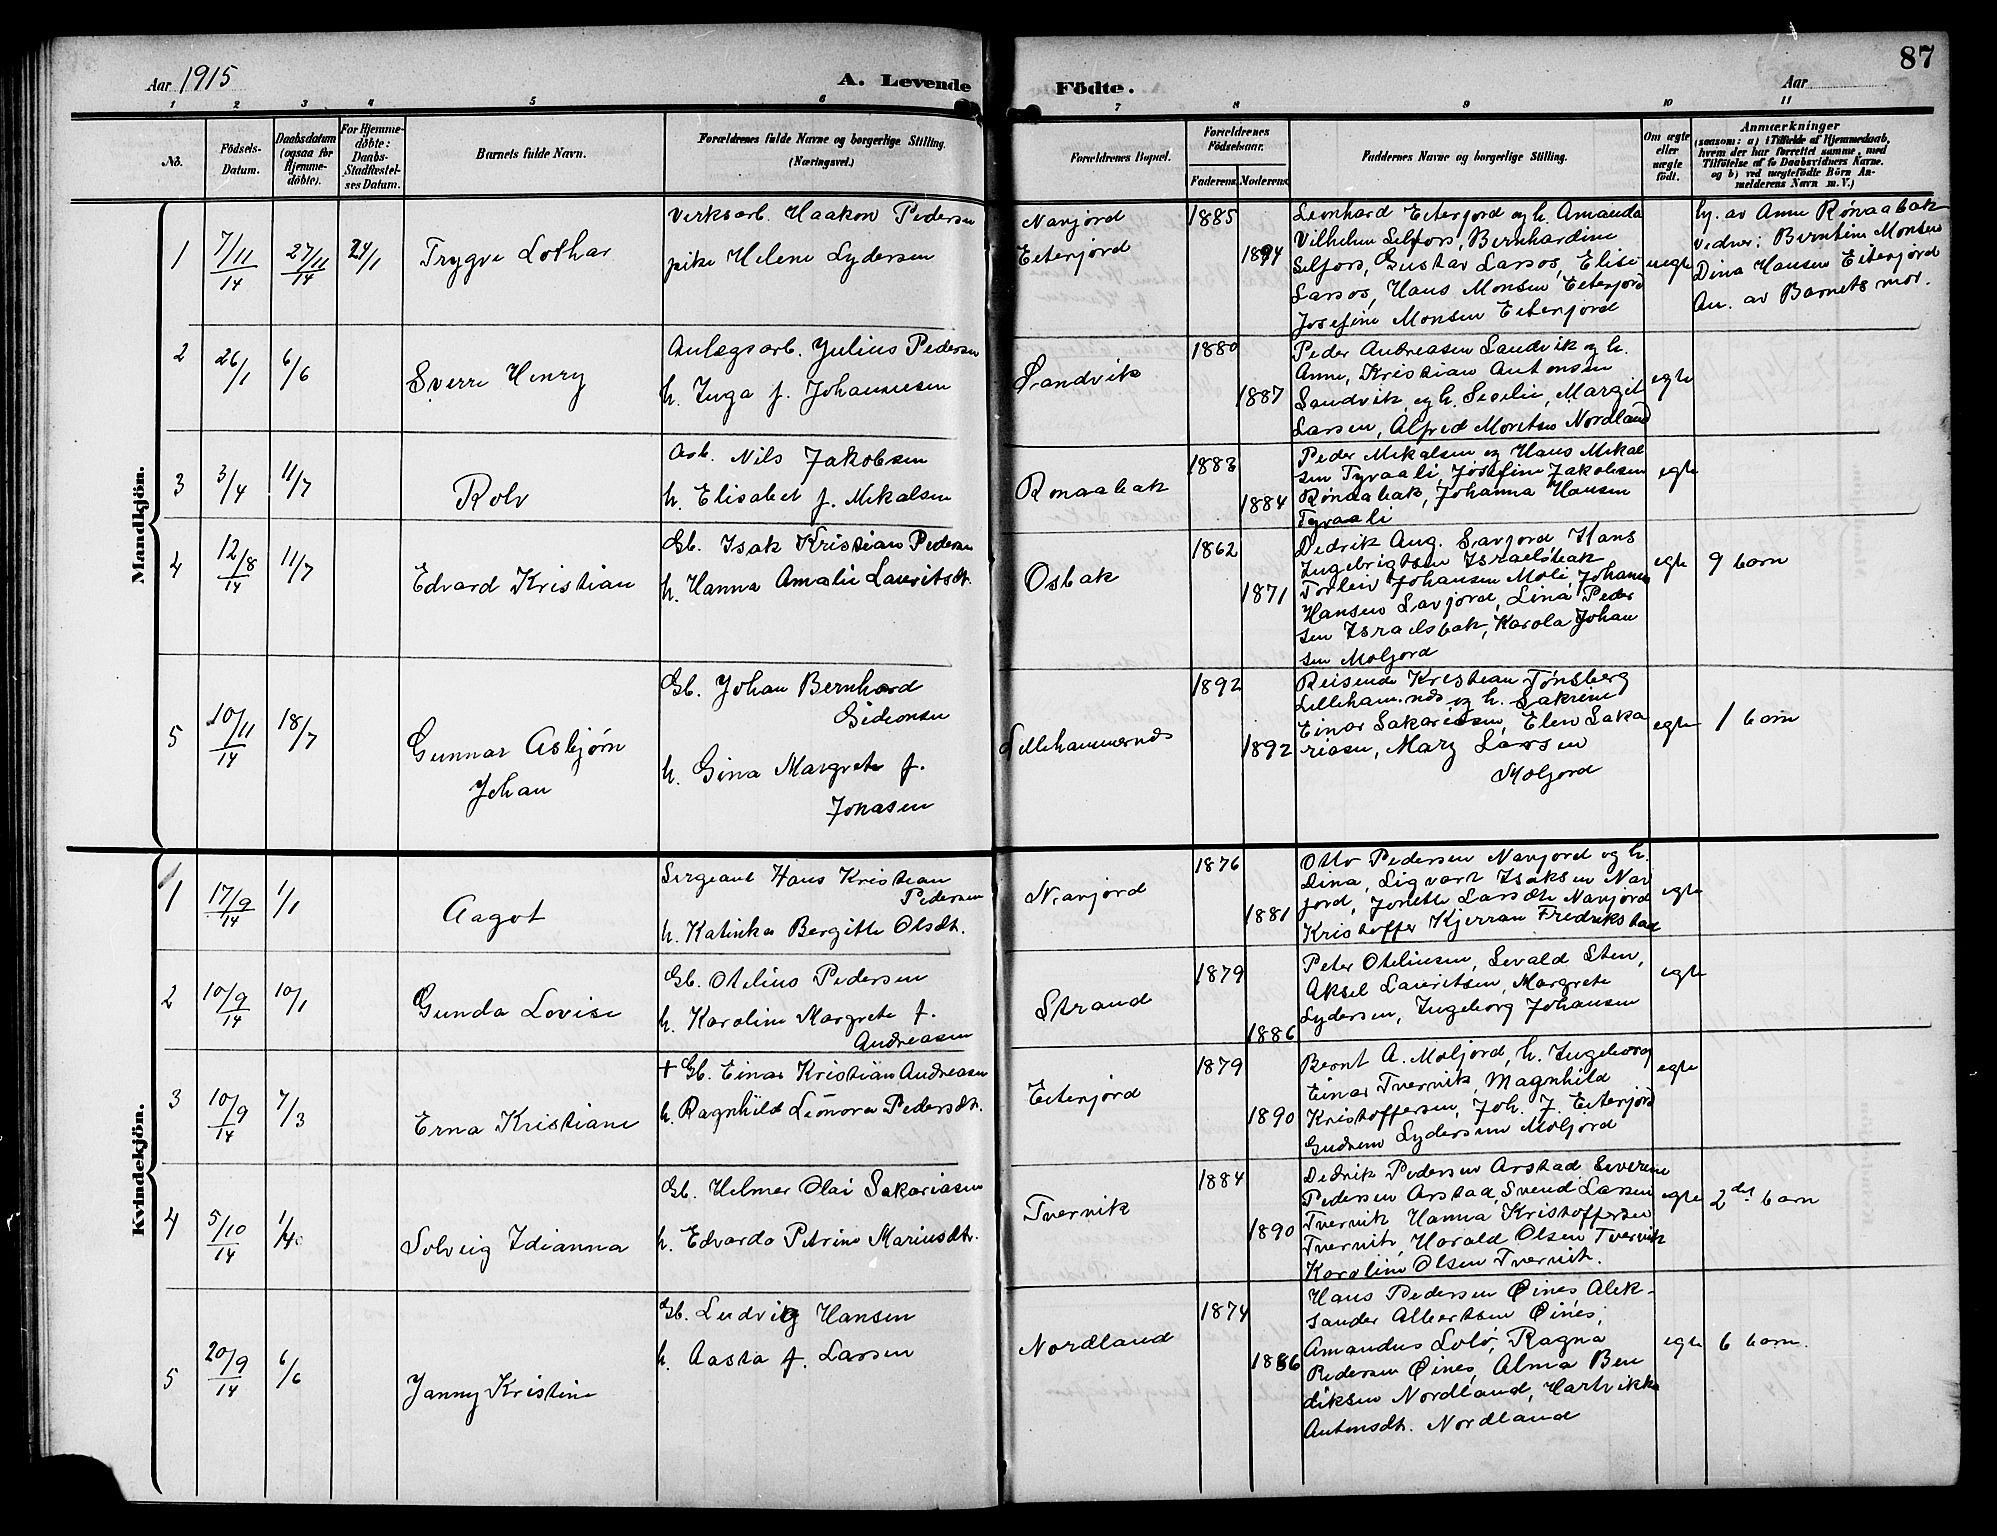 Aar 1915
A. Levende
Födte.
Aar
87
1 2 3 4 5 6 7 8 9 10 11
No.
Födsels-
Datum.
Daabsdatum
(ogsaa for
Hjemme-
döbte).
For Hjemme-
döbte:
Daabs-
Stadfæstel-
ses Datum.
Barnets fulde Navn.
Forældrenes fulde Navne og borgerlige Stilling.
(Næringsvei.)
Forældrenes Bopæl.
Forældrenes
Födselsaar.
Faderens. Moderens.
Faddernes Navne og borgerlige Stilling.
Om ægte
eller
uægte
födt.
Anmærkninger
(saasom: a) i Tilfælde af Hjemmedaab,
hvem der har forrettet samme, med
Tilföielse af to Daabsvidners Navne.
og b) ved uægtefödte Börn An-
melderens Navn m. V.)
Mandkjön.
1
7/11
14
27/11
14
24/1
Trygve Lothar
Verksarb. Haakon Pedersen
pike Helene Lydersen
Navjord
Eiterjord
1885
1894
Leonhard Eiterjord og h. Amanda
Vilhelm Selfors, Bernhardine
Selfors, Gustav Larsos, Elise
Larsos, Hans Monsen Eiterjord
Josefine Monsen Eiterjord
uegte
hj. av Anne Rønaabak
vidner: Berntine Monsen
Dina Hansen Eiterjord
An. av Barnets mor.
2
26/1
6/6
Sverre Henry
Anlegsarb. Julius Pedersen
h. Inga f. Johannesen
Sandvik
1880
1887
Peder Andreasen Sandvik og h.
Anne, Kristian Antonsen
Sandvik og h. Secilie, Margit
Larsen, Alfred Moritsen Nordland
egte
3
3/4
11/7
Rolv
Arb. Nils Jakobsen
h. Elisabet f. Mikalsen
Rønaabak
1883
1884
Peder Mikalsen og Hans Mikal
sen Tyvaali, Josefine Jakobsen
Rønaabak, Johanna Hansen
Tyvaali
egte
4
12/8
14
11/7
Edvard Kristian
Gb. Isak Kristian Pedersen
h. Hanna Amalie Lauritsdt.
Osbak
1862
1871
Didrik Aug. Savjord Hans
Ingebrigtsen Israelsbak
Torleiv Johansen Moli, Johanna
Hansen Savjord, Lina Peder
sen Israelsbak, Karola Johan
sen Moljord
egte
9 barn
5
10/11
14
18/7
Gunnar Asbjørn
Johan
Gb. Johan Bernhard
Gideonsen
h. Gina Margrete f.
Jonasen
Lillehammernds
1892
1892
Reisende Kristian Tønsberg
Lilleham.nds og h. Sakrine
Einar Sakariasen, Elen Saka
riasen, Mary Larsen
Moljord
egte
1 barn
Kvindekjön.
1
17/9
14
1/1
Aagot
Sergeant Hans Kristian
Pedersen
h. Katinka Bergitte Olsdt.
Navjord
1876
1881
Otto Pedersen Navjord og h.
Dina, Sigvart Isaksen Nav
jord, Jonette Larsdt. Navjord
Kristoffer Kjerran Fredrikstad
egte
2
10/9
14
10/1
Gunda Lovise
Gb. Otelius Pedersen
h. Karoline Margrete f.
Andreasen
Strand
1879
1886
Peter Oteliusen, Sevald Sten,
Aksel Lauritsen, Margrete
Lydersen, Ingeborg Johansen
egte
3
10/9
14
7/3
Erna Kristiane
+ Gb. Einar Kristian Andreasen
h. Ragnhild Leonora Pedersdt.
Eiterjord
1879
1890
Bernt A. Moljord, h. Ingeborg
Einar Tvervik, Magnhild
Kristoffersen, Joh. J. Eiterjord
Gudrun Lydersen Moljord
egte
4
5/10
14
1/4
Solveig Idianna
Gb. Helmer Olai Sakariasen
h. Edvarda Petrine Mariusdt.
Tvervik
1884
1890
Didrik Pedersen Arstad Severine
Pedersen Arstad, Svend Larsen
Tvervik, Hanna Kristoffersen
Tvervik, Harald Olsen Tvervik
Karoline Olsen Tvervik.
egte
2det barn
5
20/9
14
6/6
Janny Kristine
Gb. Ludvig Hansen
h. Aasta f. Larsen
Nordland
1874
1886
Hans Pedersen Øines Alek-
sander Albertsen Øines,
Amandus Solø, Ragna
Pedersen Øines, Alma Ben
diksen Nordland, Hartvikka
Antonsdt. Nordland
egte
6 barn.